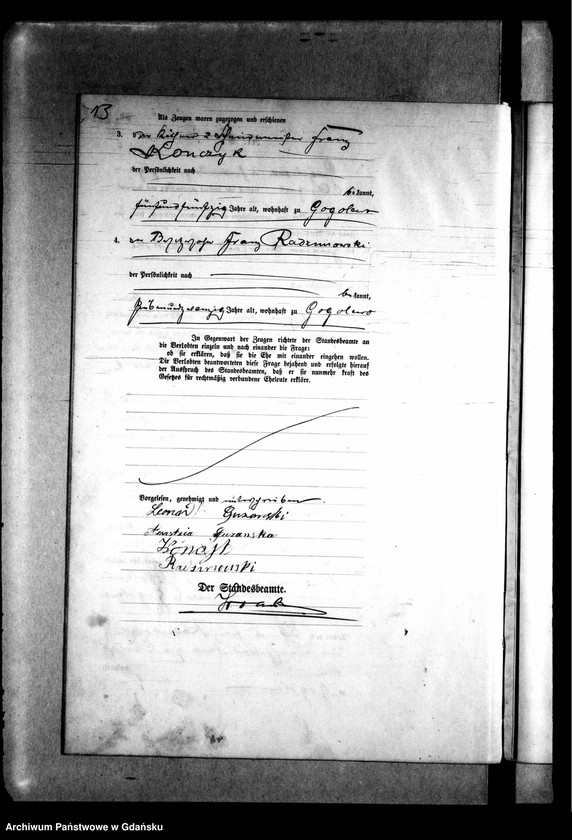 13
Als Zeugen waren zugezogen und erschienen
3. der
Franz
Konczyk
der Persönlichkeit nach
be kannt,
fünfundfünfzig Jahre alt, wohnhaft zu Gogolewo
4. der Franz Radzimowski
der Persönlichkeit nach
be kannt,
siebenundzwanzig Jahre alt, wohnhaft zu Gogolewo
In Gegenwart der Zeugen richtete der Standesbeamte an
die Verlobten einzeln und nach einander die Frage:
ob sie erklären, daß sie die Ehe mit einander eingehen wollen.
Die Verlobten beantworteten diese Frage bejahend und erfolgte hierauf
der Ausspruch des Standesbeamten, daß er sie nunmehr kraft des
Gesetzes für rechtmäßig verbundene Eheleute erkläre.
Vorgelesen, genehmigt und unterschrieben.
Leonard
Der Standesbeamte.
Archiwum Państwowe w Gdańsku